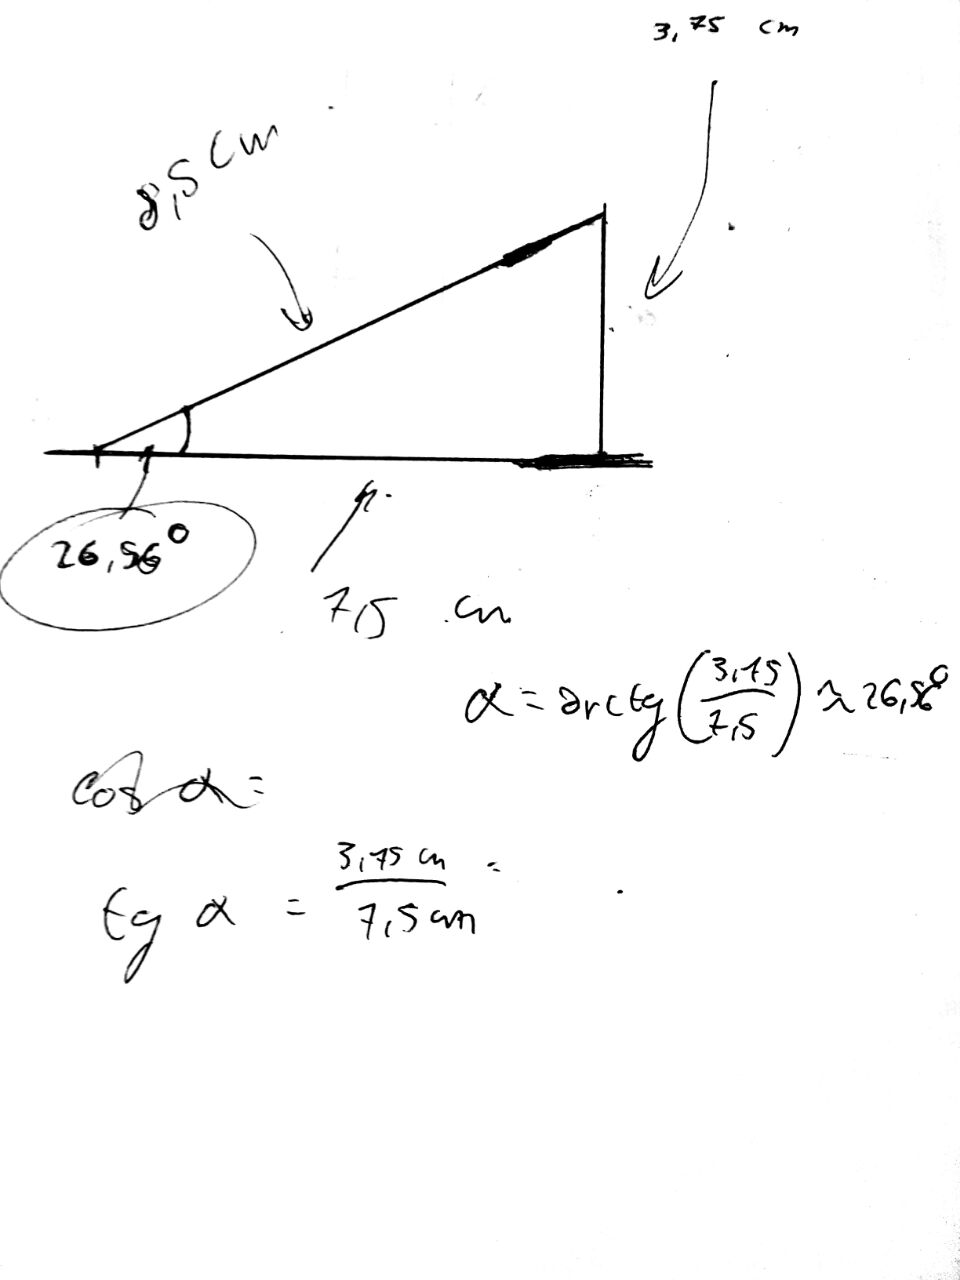 3,75 cm
8,5 cm
26,56°
7,5 cm
α = arctg (3,75/7,5) ≈ 26,56°
cos α =
tg α = 3,75 cm / 7,5 cm =